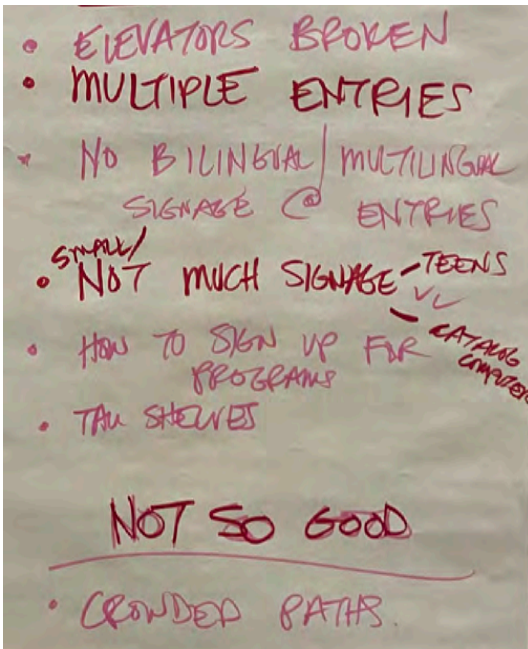 • ELEVATORS BROKEN
• MULTIPLE ENTRIES
• NO BILINGUAL/MULTILINGUAL
SIGNAGE @ ENTRIES
SMALL/
• NOT MUCH SIGNAGE - TEENS
- CATALOG
COMPUTERS
• HOW TO SIGN UP FOR
PROGRAMS
• TALL SHELVES
NOT SO GOOD
• CROWDED PATHS.